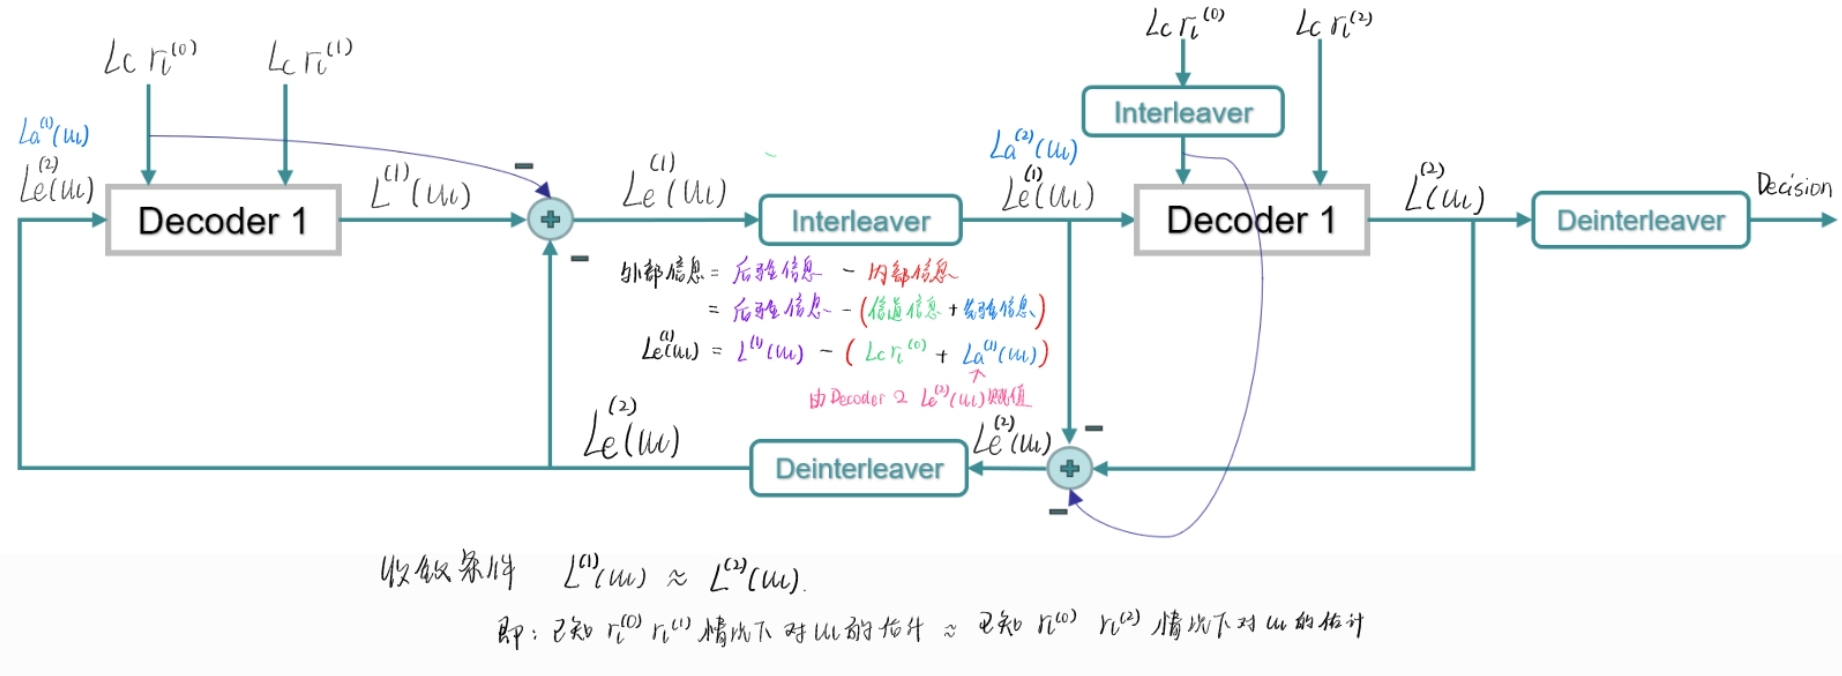 Lc rₗ⁽⁰⁾
Lc rₗ⁽¹⁾
La⁽¹⁾(uₗ)
Le⁽²⁾(uₗ)
Decoder 1
L⁽¹⁾(uₗ)
−
+
−
Le⁽¹⁾(uₗ)
Interleaver
La⁽²⁾(uₗ)
Le⁽¹⁾(uₗ)
Lc rₗ⁽⁰⁾
Lc rₗ⁽²⁾
Interleaver
Decoder 1
L⁽²⁾(uₗ)
Deinterleaver
Decision
外部信息 = 后验信息 - 内部信息
= 后验信息 - (信道信息 + 先验信息)
Le⁽¹⁾(uₗ) = L⁽¹⁾(uₗ) - ( Lc rₗ⁽⁰⁾ + La⁽¹⁾(uₗ) )
由 Decoder 2 Le⁽²⁾(uₗ) 赋值
Le⁽²⁾(uₗ)
Deinterleaver
Le⁽²⁾(uₗ)
−
+
−
收敛条件 L⁽¹⁾(uₗ) ≈ L⁽²⁾(uₗ).
即: 已知 rₗ⁽⁰⁾ rₗ⁽¹⁾ 情况下 对 uₗ 的估计 ≈ 已知 rₗ⁽⁰⁾ rₗ⁽²⁾ 情况下对 uₗ 的估计